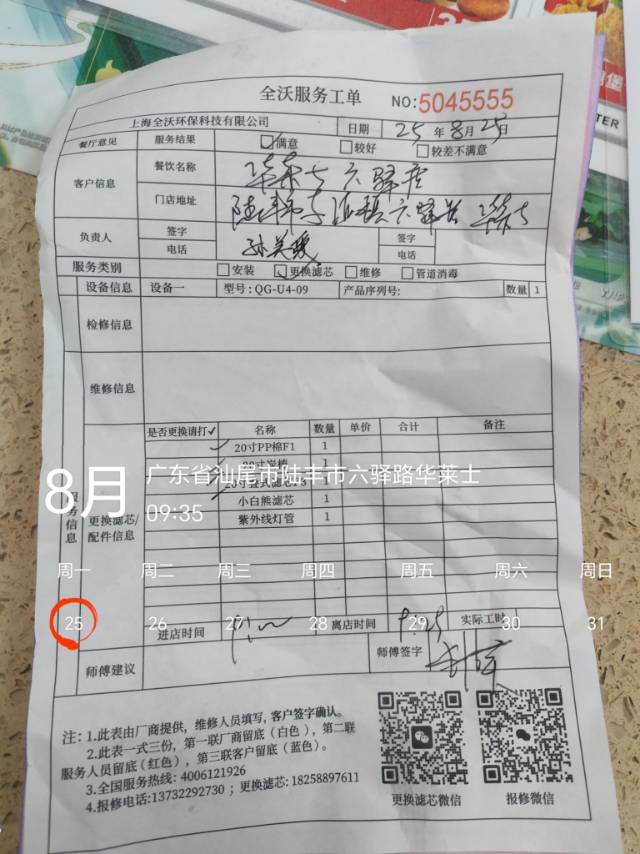 全沃服务工单
NO:5045555
上海全沃环保科技有限公司
日期
25年8月25日
餐厅意见
服务结果
满意
较好
较差不满意
客户信息
餐饮名称
华莱士六驿店
门店地址
负责人
签字
电话
签字
电话
服务类别
安装
更换滤芯
维修
管道消毒
设备信息
设备一
型号:QG-U4-09
产品序列号:
数量 1
检修信息
维修信息
服务信息
更换滤芯/
配件信息
是否更换请打✓ 名称 数量 单价 合计 备注
✓ 20寸PP棉F1 1
1
1
小白熊滤芯 1
紫外线灯管 1
8月
广东省汕尾市陆丰市六驿路华莱士
09:35
周一 周二 周三 周四 周五 周六 周日
25 26 27 28 29 30 31
进店时间
离店时间
实际工时
师傅建议
师傅签字
注：1.此表由厂商提供，维修人员填写，客户签字确认。
2.此表一式三份，第一联厂商留底（白色），第二联
服务人员留底（红色），第三联客户留底（蓝色）。
3.全国服务热线：4006121926
4.报修电话:13732292730；更换滤芯:18258897611
更换滤芯微信
报修微信